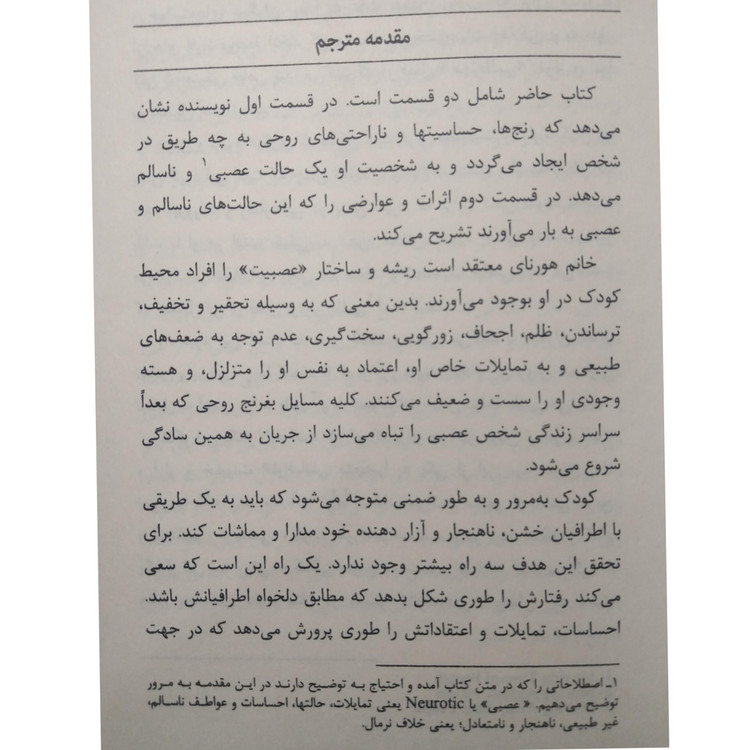 مقدمه مترجم
کتاب حاضر شامل دو قسمت است. در قسمت اول نویسنده نشان
می‌دهد که رنج‌ها، حساسیتها و ناراحتی‌های روحی به چه طریق در
شخص ایجاد می‌گردد و به شخصیت او یک حالت عصبی۱ و ناسالم
می‌دهد. در قسمت دوم اثرات و عوارضی را که این حالت‌های ناسالم و
عصبی به بار می‌آورند تشریح می‌کند.
خانم هورنای معتقد است ریشه و ساختار «عصبیت» را افراد محیط
کودک در او بوجود می‌آورند. بدین معنی که به وسیله تحقیر و تخفیف،
ترساندن، ظلم، اجحاف، زورگویی، سخت‌گیری، عدم توجه به ضعف‌های
طبیعی و به تمایلات خاص او، اعتماد به نفس او را متزلزل، و هسته
وجودی او را سست و ضعیف می‌کنند. کلیه مسایل بغرنج روحی که بعداً
سراسر زندگی شخص عصبی را تباه می‌سازد از جریان به همین سادگی
شروع می‌شود.
کودک به‌مرور و به طور ضمنی متوجه می‌شود که باید به یک طریقی
با اطرافیان خشن، ناهنجار و آزار دهنده خود مدارا و مماشات کند. برای
تحقق این هدف سه راه بیشتر وجود ندارد. یک راه این است که سعی
می‌کند رفتارش را طوری شکل بدهد که مطابق دلخواه اطرافیانش باشد.
احساسات، تمایلات و اعتقاداتش را طوری پرورش می‌دهد که در جهت
۱ـ اصطلاحاتی را که در متن کتاب آمده و احتیاج به توضیح دارند در این مقدمه به مرور
توضیح می‌دهیم. «عصبی» یا Neurotic یعنی تمایلات، حالتها، احساسات و عواطف ناسالم،
غیر طبیعی، ناهنجار و نامتعادل؛ یعنی خلاف نرمال.